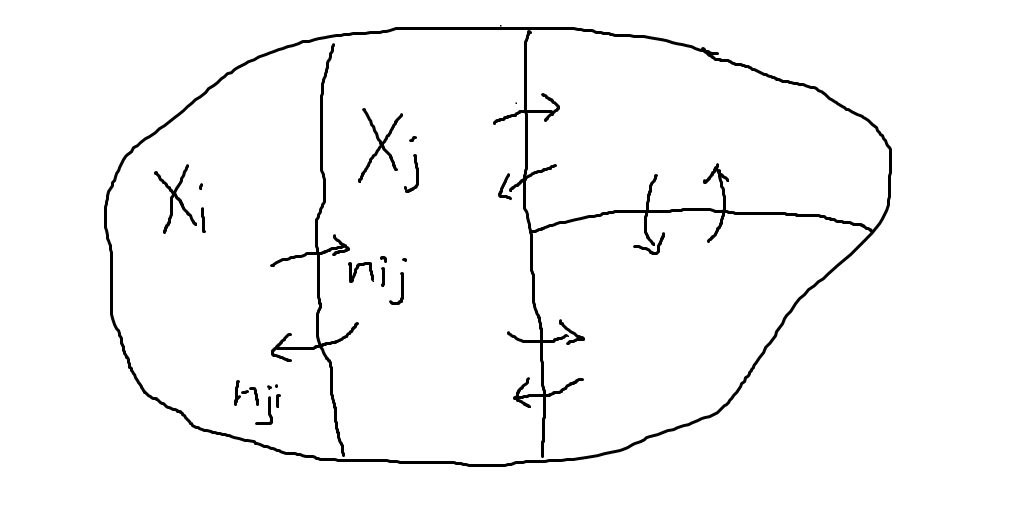 Xi
Xj
nij
nji